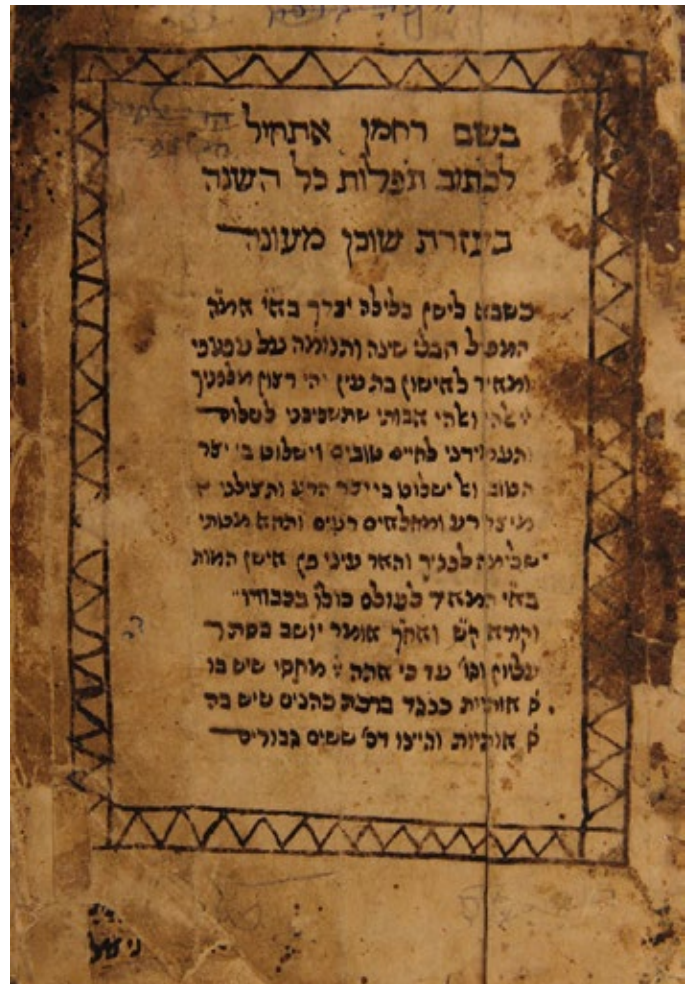 בשם רחמן אתחיל
לכתוב תפלות כל השנה
בעזרת שוכן מעונה
כשבא לישן בלילה יברך בא״י אמ״ה
המפיל חבלי שינה ותנומה על עפעפי
ומאיר לאישון בת עין יהי רצון מלפניך
ואלהי אבותי שתשכיבני לשלום
ותעמידני לחיים טובים וישלוט בי יצר
הטוב ואל ישלוט בי יצר הרע ותצילני
מיצר רע ומחלאים רעים ותהא מטתי
שלימה לפניך והאר עיני פן אישן המות
בא״י המאיר לעולם כולו בכבודו
וקורא ק״ש ואח״ך אומר יושב בסתר
עליון וכו׳ עד כי אתה מחסי שיש בו
ס׳ אותיות כנגד ברכת כהנים שיש בה
ס׳ אותיות והיינו דכ׳ ששים גבורים